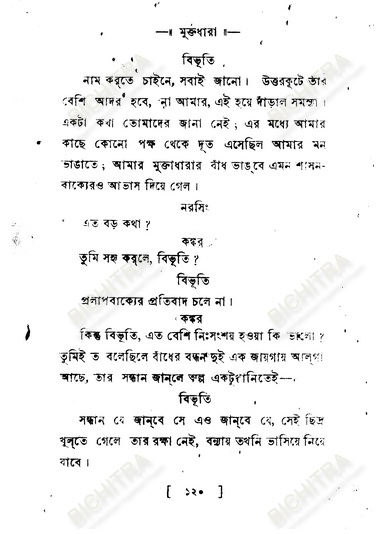 —॥ মুক্তধারা ॥—
বিভূতি
নাম করতে চাইনে, সবাই জানো। উত্তরকূটে তাঁর
বেশি আদর হবে, না আমার, এই হয়ে দাঁড়াল সমস্যা।
একটা কথা তোমাদের জানা নেই; এর মধ্যে আমার
কাছে কোনো পক্ষ থেকে দূত এসেছিল আমার মন
ভাঙাতে; আমার মুক্তধারার বাঁধ ভাঙবে এমন শাসন-
বাক্যেরও আভাস দিয়ে গেল।
নরসিং
এত বড় কথা?
কঙ্কর
তুমি সহ্য করলে, বিভূতি?
বিভূতি
প্রলাপবাক্যের প্রতিবাদ চলে না।
কঙ্কর
কিন্তু বিভূতি, এত বেশি নিঃসংশয় হওয়া কি ভালো?
তুমিই ত বলেছিলে বাঁধের বন্ধন দুই এক জায়গায় আল্‌গা
আছে, তার সন্ধান জান্‌লে অল্প একটুখানিতেই—
বিভূতি
সন্ধান যে জান্‌বে সে এও জান্‌বে যে, সেই ছিদ্র
খুল্‌তে গেলে তার রক্ষা নেই, বন্যায় তখনি ভাসিয়ে নিয়ে
যাবে।
[ ১২০ ]
BICHITRA
BICHITRA
BICHITRA
BICHITRA
BICHITRA
BICHITRA